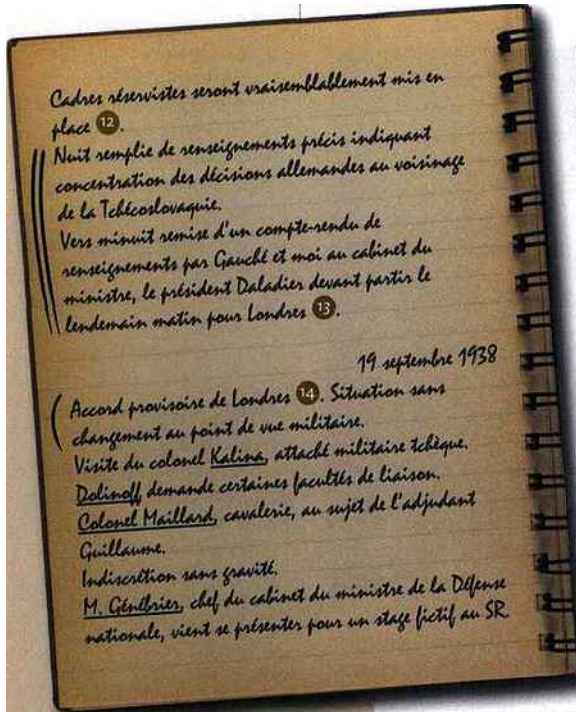 Cadres réservistes seront vraisemblablement mis en
place 12.
Nuit remplie de renseignements précis indiquant
concentration des décisions allemandes au voisinage
de la Tchécoslovaquie.
Vers minuit remise d'un compte-rendu de
renseignements par Gauché et moi au cabinet du
ministre, le président Daladier devant partir le
lendemain matin pour Londres 13.
19 septembre 1938
Accord provisoire de Londres 14. Situation sans
changement au point de vue militaire.
Visite du colonel Kalina, attaché militaire tchèque.
Dolinoff demande certaines facultés de liaison.
Colonel Maillard, cavalerie, au sujet de l'adjudant
Guillaume.
Indiscrétion sans gravité.
M. Génébrier, chef du cabinet du ministre de la Défense
nationale, vient se présenter pour un stage fictif au SR.